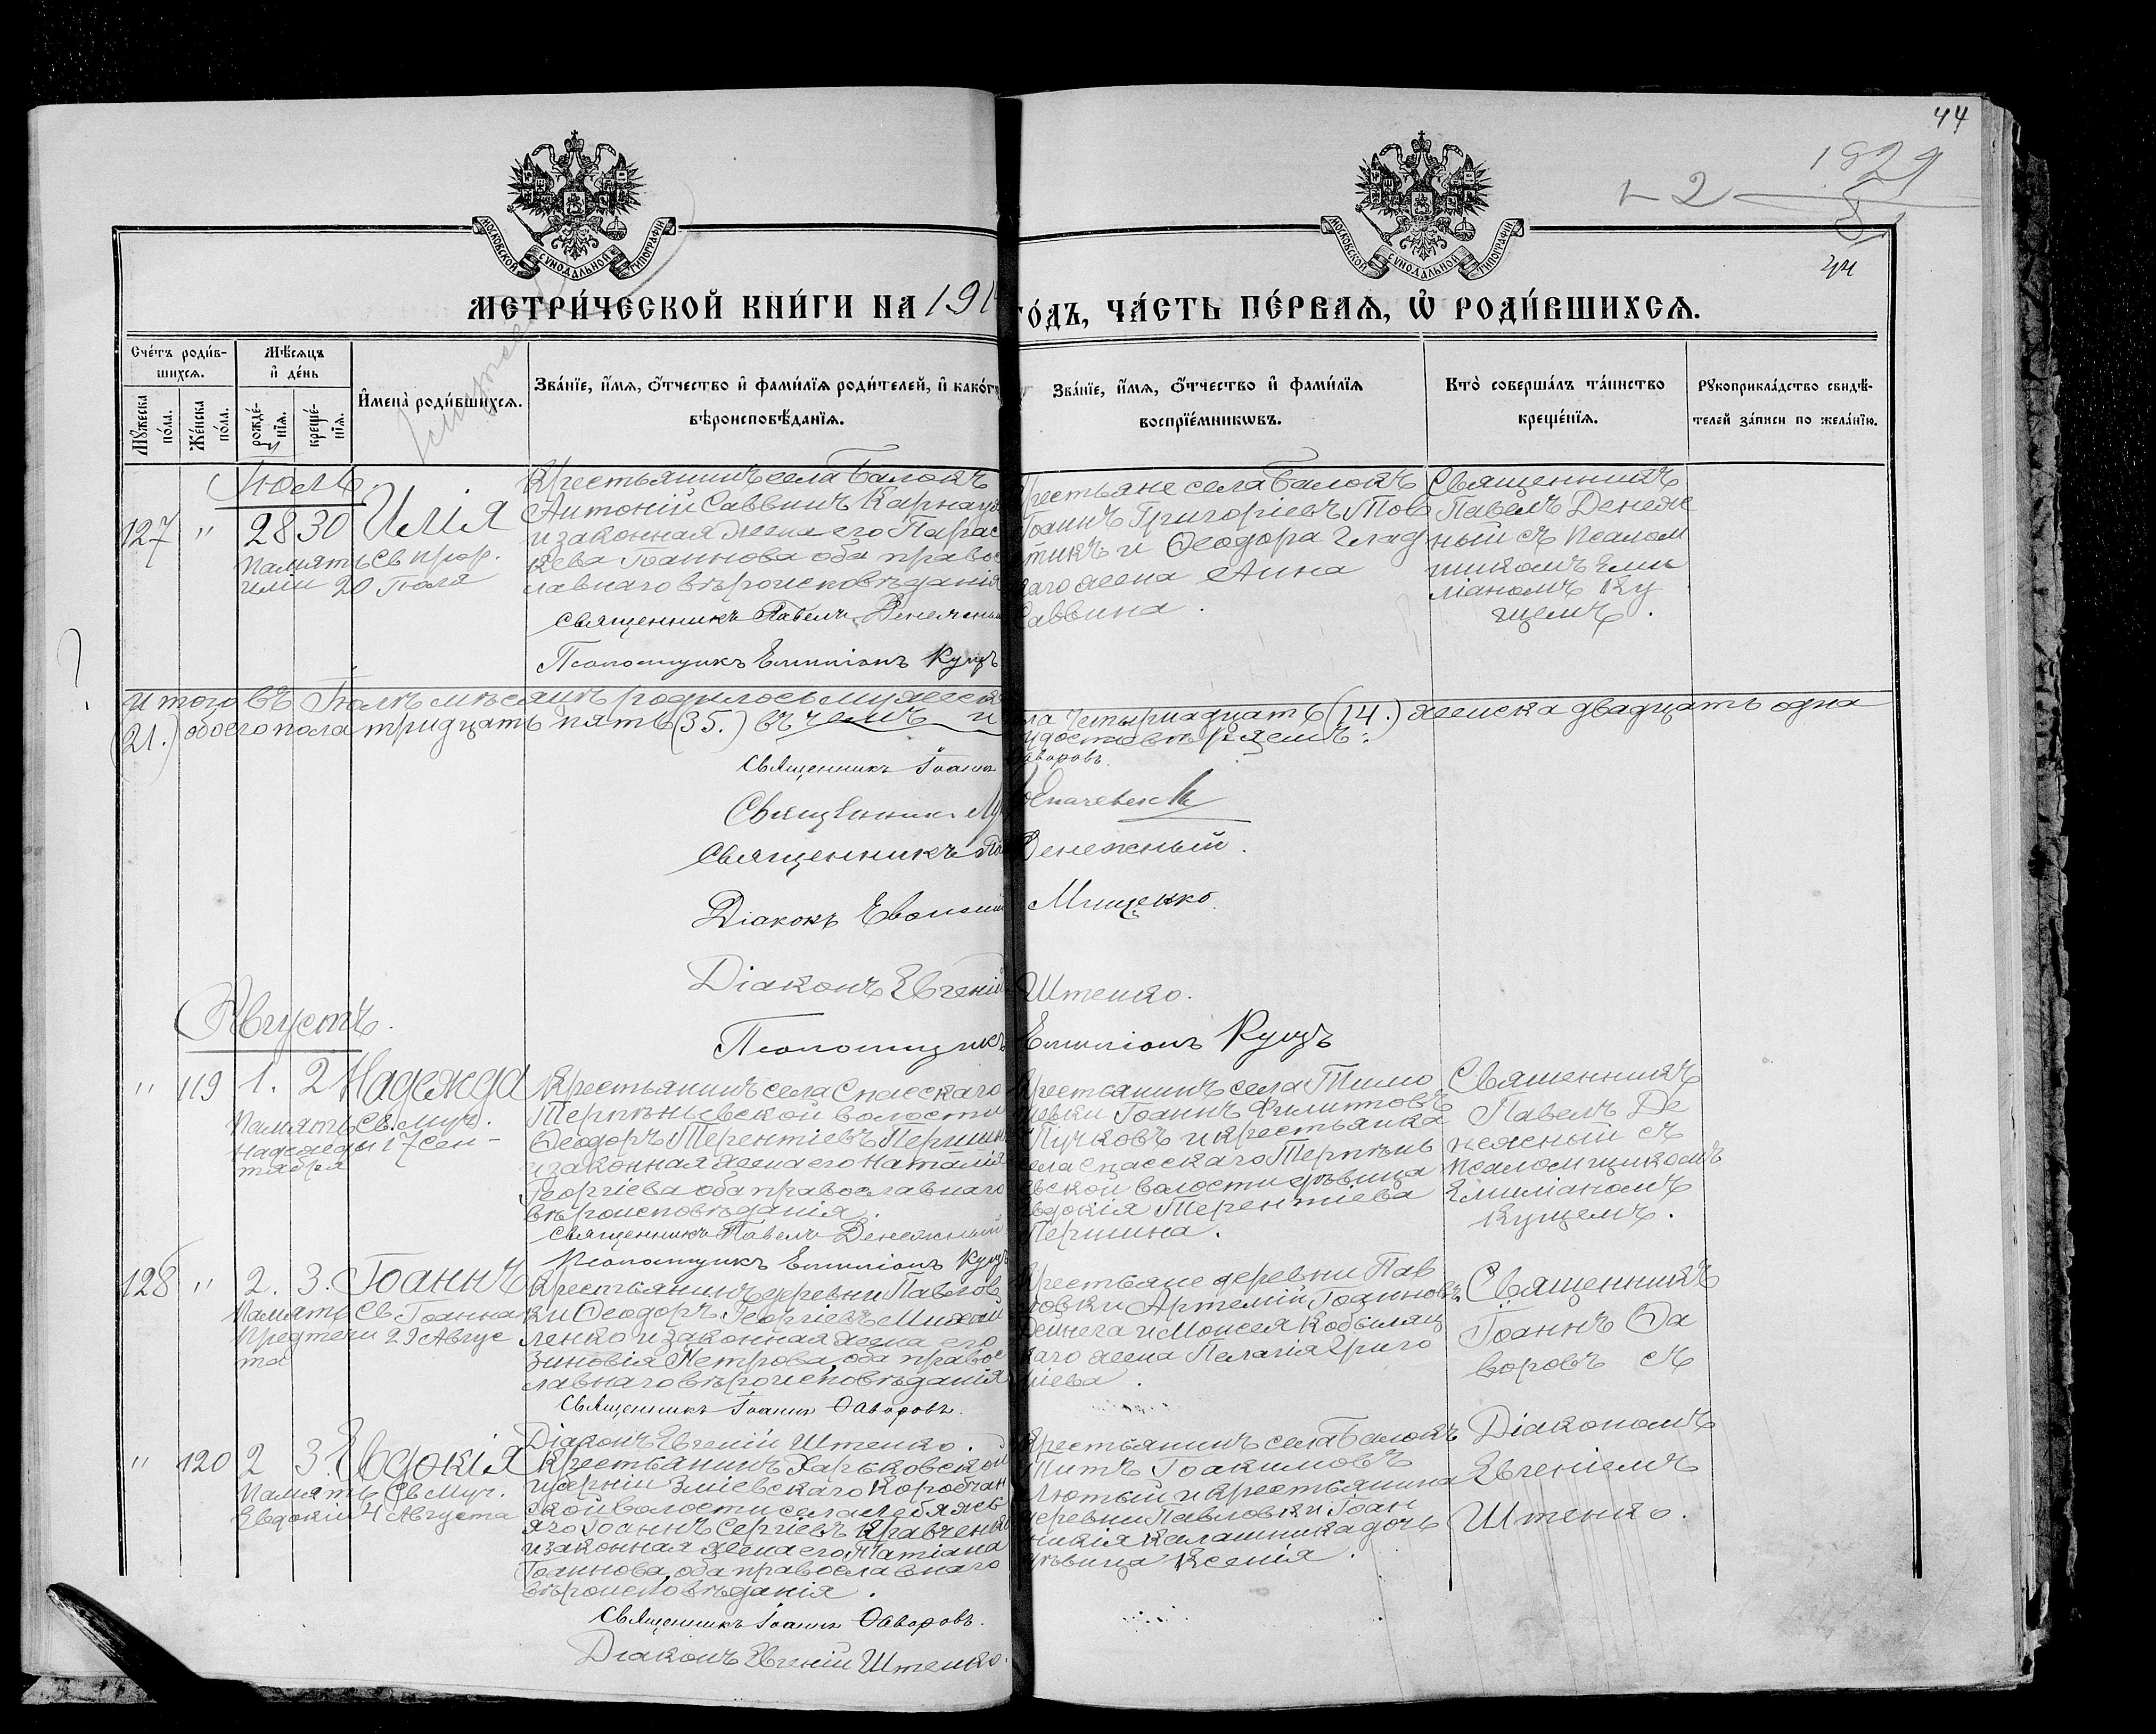 44
1829
1-2
5
44
МОСКОВСКОЙ СУНОДАЛЬНОЙ ТИПОГРАФІИ
МОСКОВСКОЙ СУНОДАЛЬНОЙ ТИПОГРАФІИ
МЕТРИ́ЧЕСКОЙ КНИ́ГИ НА 191
ГО́ДЪ, ЧА́СТЬ ПЕ́РВАѦ, Ѡ РОДИ́ВШИХСѦ.
Сче́тъ роди́в-
шихся.
Мѣ́сяцъ
и де́нь
Мꙋжеска по́ла.
Же́нска по́ла.
рожде́-
нїя.
креще́-
нїя.
И҆мена̀ роди́вшихся.
Зва́нїе, и҆́мя, ѻ҆́тчество и҆ фами́лїя роди́телей, и҆ како́гѡ
вѣроисповѣ́данїя.
Зва́нїе, и҆́мя, ѻ҆́тчество и҆ фами́лїя
воспрїе́мникѡвъ.
Кто̀ соверша́лъ та́инство
креще́нїя.
Рꙋкоприкла́дство свидѣ́-
телей за́писи по жела́нїю.
Іюль.
127 " 28 30 Илія
Память Св. прор.
Иліи 20 Іюля
Крестьянинъ села Балокъ
Антоній Саввинъ Карнаух
и законная жена его Парас
кева Іоаннова оба правос
лавнаго вѣроисповѣданія
Священникъ Павелъ Денежный
Псаломщикъ Емиліанъ Кущъ
Крестьяне села Балокъ
Іоаннъ Григоріевъ Тов
тикъ и Ѳеодора Глад
каго жена Анна
Саввина.
Священникъ
Павелъ Денеж
ный съ Псалом
щикомъ Еми
ліаномъ Ку
щемъ.
Итого въ Іюлѣ мѣсяцѣ родилось мужеска
пола четырнадцать (14.) женска двадцать одна
(21.) обоего пола тридцать пять (35.) въ чемъ и
удостовѣряемъ:
Священникъ Іоаннъ Фаворовъ.
Священникъ
Священникъ Па Денежный.
Діаконъ Евфимій Мищенко.
Діаконъ Евгеній Штенко.
Псаломщикъ Емиліанъ Кущъ
Августъ.
" 119 1. 2 Надежда
Память Св. Муч.
Надежды 17 Сен-
тября
Крестьянинъ села Спасскаго
Терпѣньевской волости
Ѳеодоръ Терентіевъ Першин
и законная жена его Наталія
Георгіева оба православнаго
вѣроисповѣданія.
Священникъ Павелъ Денежный
Псаломщикъ Емиліанъ Кущъ
Крестьянинъ села Тимо
шевки Іоаннъ Филипповъ
Пучковъ и крестьянка
села Спасскаго Терпѣнь
евской волости дѣвица
Евдокія Терентіева
Першина.
Священникъ
Павелъ Де
нежный съ
Псаломщикомъ
Емиліаномъ
Кущемъ.
128 " 2. 3. Іоаннъ
Память Св. Іоанна
Предтечи 29 Авгус
та
Крестьянинъ деревни Павлов
ки Ѳеодоръ Георгіевъ Михай
ленко и законная жена его
Зиновія Петрова, оба правос
лавнаго вѣроисповѣданія
Священникъ Іоаннъ Фаворовъ.
Діаконъ Евгеній Штенко.
Крестьяне деревни Пав
ловки Артемій Іоанновъ
Дейнега и Моисея Кобыляц
каго жена Пелагія Григо
ріева.
Священникъ
Іоаннъ Фа
воровъ съ
Діакономъ
Евгеніемъ
Штенко.
" 120 2 3. Евдокія
Память Св. Муч.
Евдокіи 4 Августа
Крестьянинъ Харьковской
губерніи Зміевскаго Коробчан
ской волости села Лебяжь
яго Іоаннъ Сергіевъ Кравченко
и законная жена его Татіана
Іоаннова, оба православнаго
вѣроисповѣданія.
Священникъ Іоаннъ Фаворовъ.
Діаконъ Евгеній Штенко.
Крестьянинъ села Балокъ
Титъ Іоакимовъ
Лютый и крестьянина
деревни Павловки Іоан
никія Калашника дочь
дѣвица Ксенія.